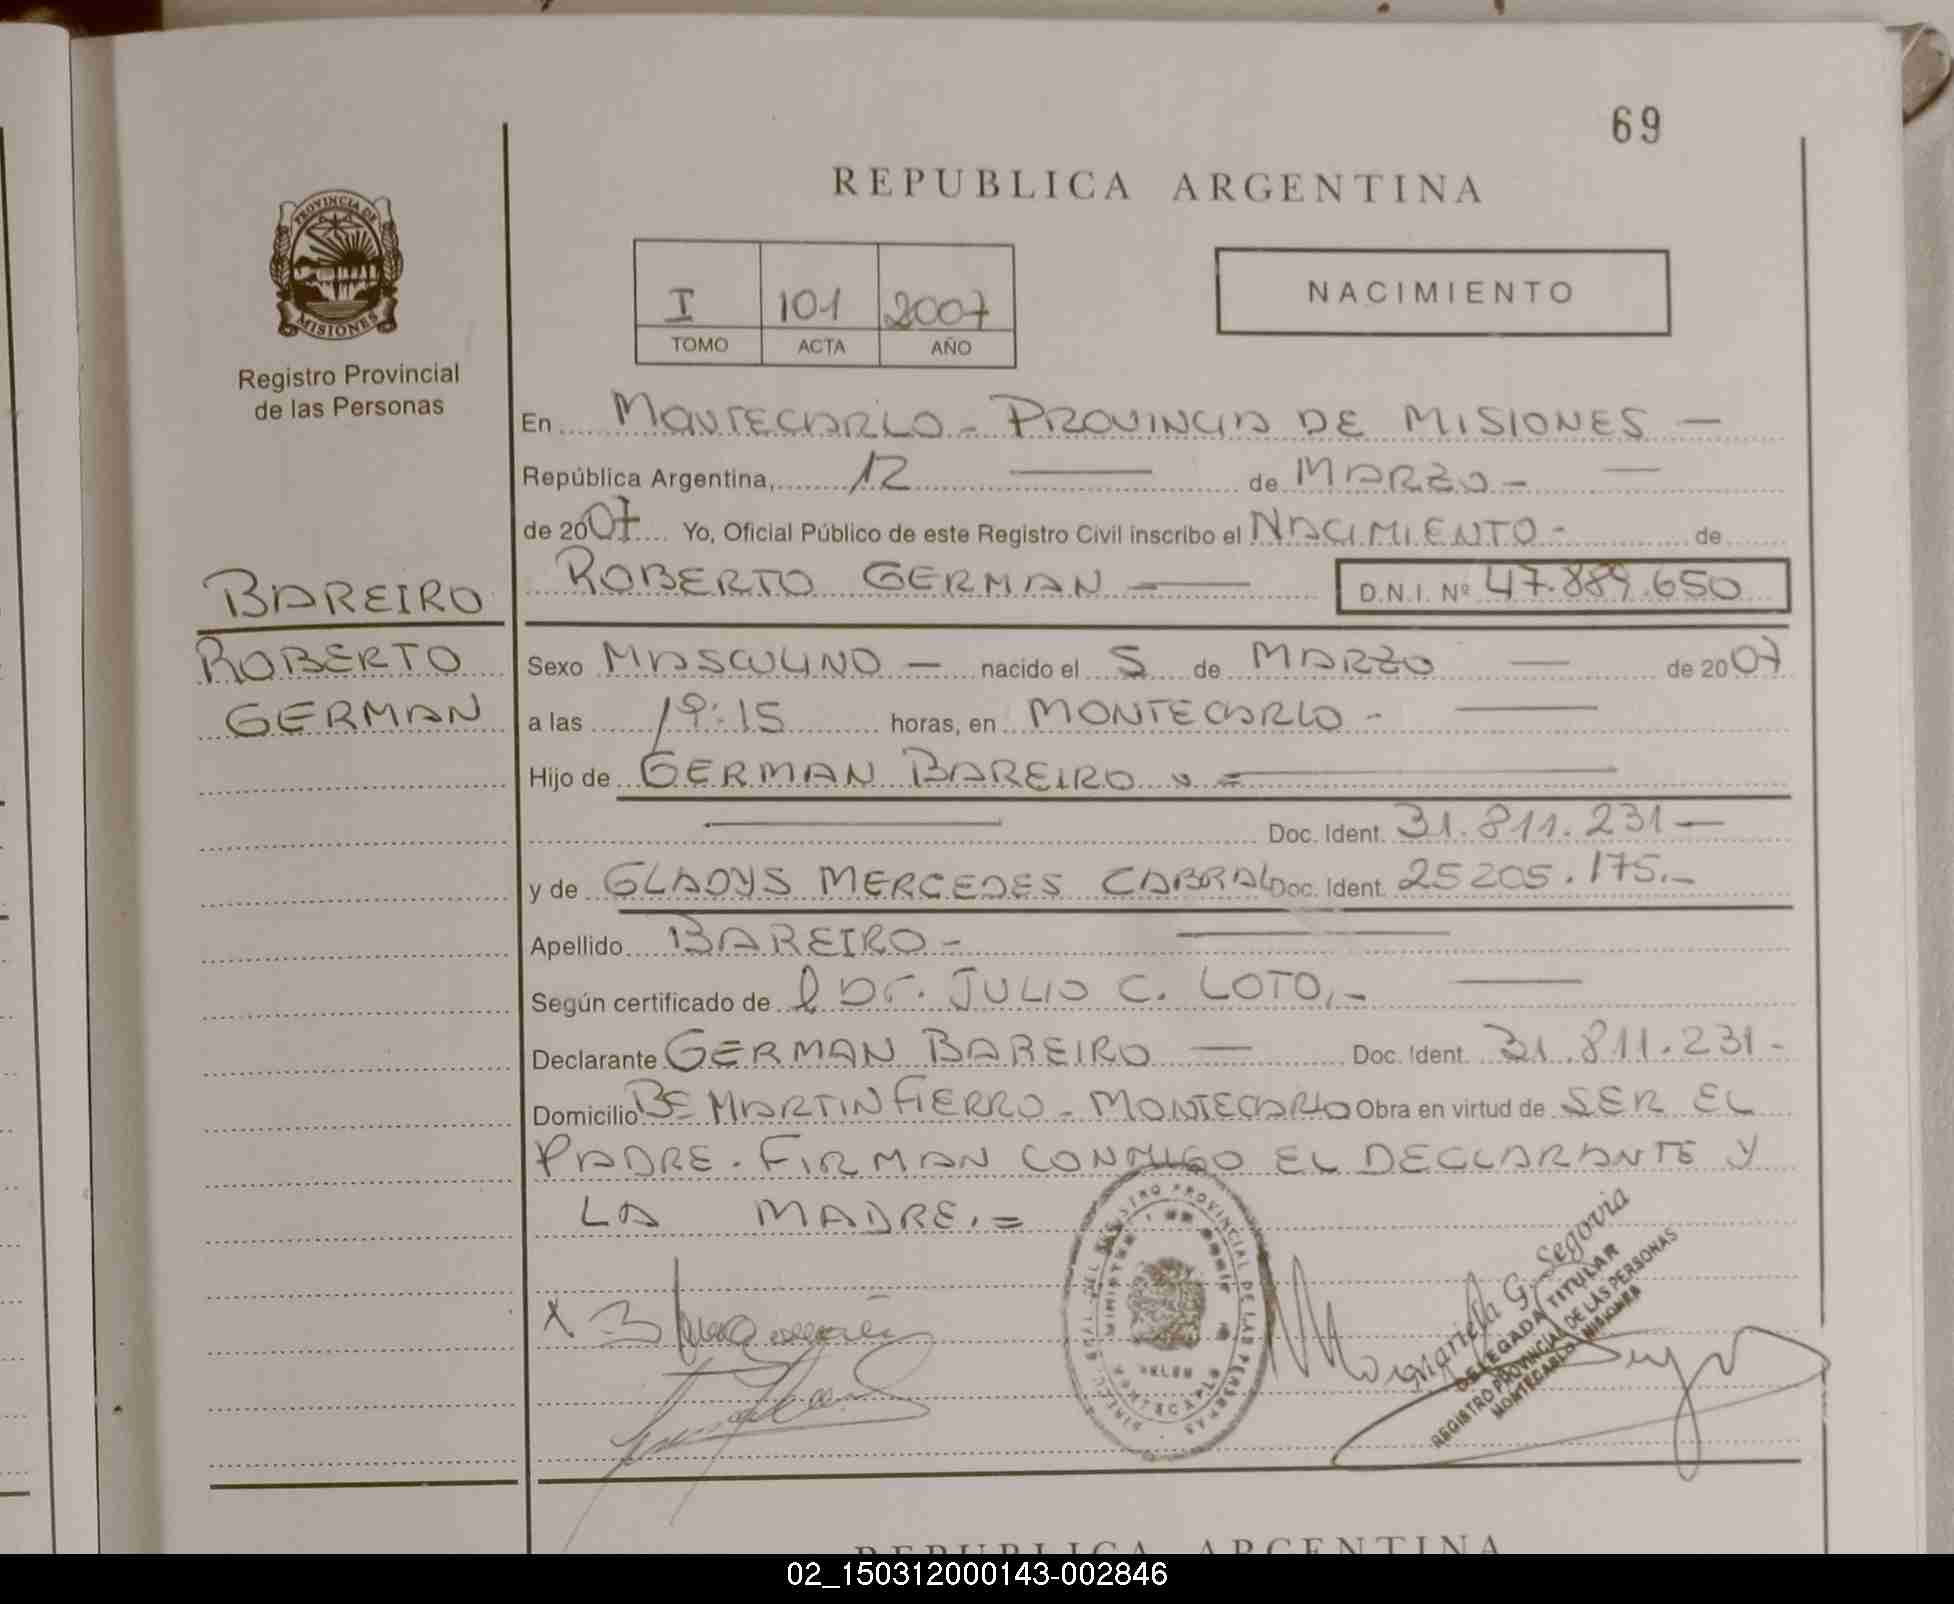 69
REPUBLICA ARGENTINA
PROVINCIA DE
MISIONES
Registro Provincial
de las Personas
I 101 2007
TOMO ACTA AÑO
NACIMIENTO
En MONTECARLO - PROVINCIA DE MISIONES —
República Argentina, 12 — de MARZO - —
de 2007 Yo, Oficial Público de este Registro Civil inscribo el NACIMIENTO - de
BAREIRO
ROBERTO GERMAN — D.N.I. Nº 47.889.650
ROBERTO
Sexo MASCULINO — nacido el 5 de MARZO — de 2007
GERMAN
a las 19:15 horas, en MONTECARLO - —
Hijo de GERMAN BAREIRO
Doc. Ident. 31.811.231 —
y de GLADYS MERCEDES CABRAL Doc. Ident. 25205.175.-
Apellido BAREIRO - —
Según certificado de Dr. JULIO C. LOTO.- —
Declarante GERMAN BAREIRO — Doc. Ident. 31.811.231 -
Domicilio Bº MARTIN FIERRO - MONTECARLO Obra en virtud de SER EL
PADRE. FIRMAN CONMIGO EL DECLARANTE Y
LA MADRE.=
REGISTRO PROVINCIAL DE LAS PERSONAS
MONTECARLO
Mariella G. Segovia
DELEGADA TITULAR
REGISTRO PROVINCIAL DE LAS PERSONAS
MONTECARLO MISIONES
REPUBLICA ARGENTINA
02_150312000143-002846